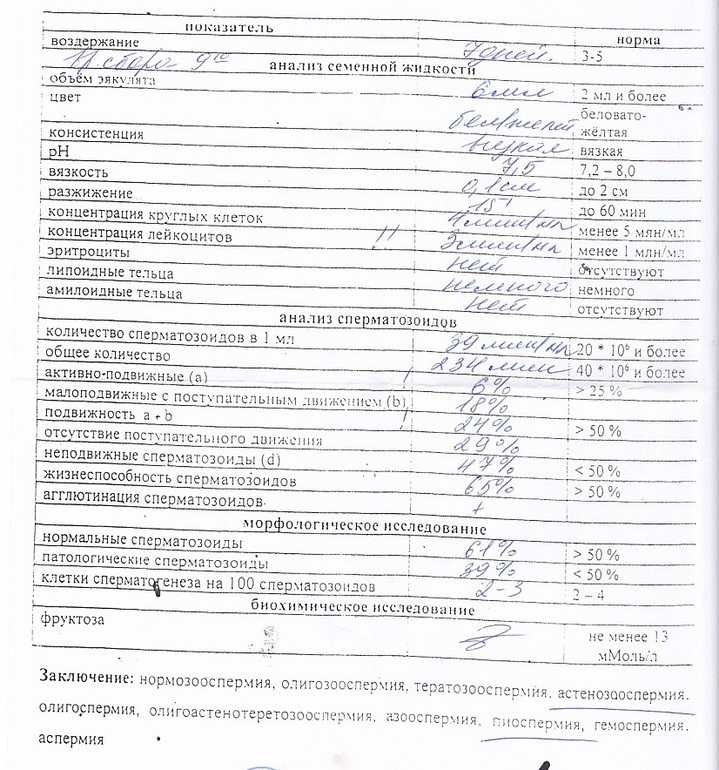 показатель норма
воздержание 7 дней. 3-5
сбора 9
анализ семенной жидкости
объём эякулята 6 мл 2 мл и более
цвет беловато-
жёлтая
консистенция вязкая вязкая
pH 7,5 7,2 – 8,0
вязкость 0,1 см до 2 см
разжижение 15' до 60 мин
концентрация круглых клеток 4 млн/мл менее 5 мян/мл
концентрация лейкоцитов !! 3 млн/мл менее 1 млн/мл
эритроциты нет отсутствуют
липоидные тельца немного немного
амилоидные тельца нет отсутствуют
анализ сперматозоидов
количество сперматозоидов в 1 мл 39 млн/мл 20 * 10⁶ и более
общее количество 234 млн 40 * 10⁶ и более
активно-подвижные (a) ! 6% > 25 %
малоподвижные с поступательным движением (b) 18%
подвижность a + b ! 24% > 50 %
отсутствие поступательного движения 29%
неподвижные сперматозоиды (d) 47% < 50 %
жизнеспособность сперматозоидов 65% > 50 %
агглютинация сперматозоидов +
морфологическое исследование
нормальные сперматозоиды 61% > 50 %
патологические сперматозоиды 39% < 50 %
клетки сперматогенеза на 100 сперматозоидов 2-3 2 – 4
биохимическое исследование
фруктоза не менее 13
мМоль/л
Заключение: нормозооспермия, олигозооспермия, тератозооспермия, астенозооспермия,
олигоспермия, олигоастенотеретозооспермия, азооспермия, пиоспермия, гемоспермия,
аспермия